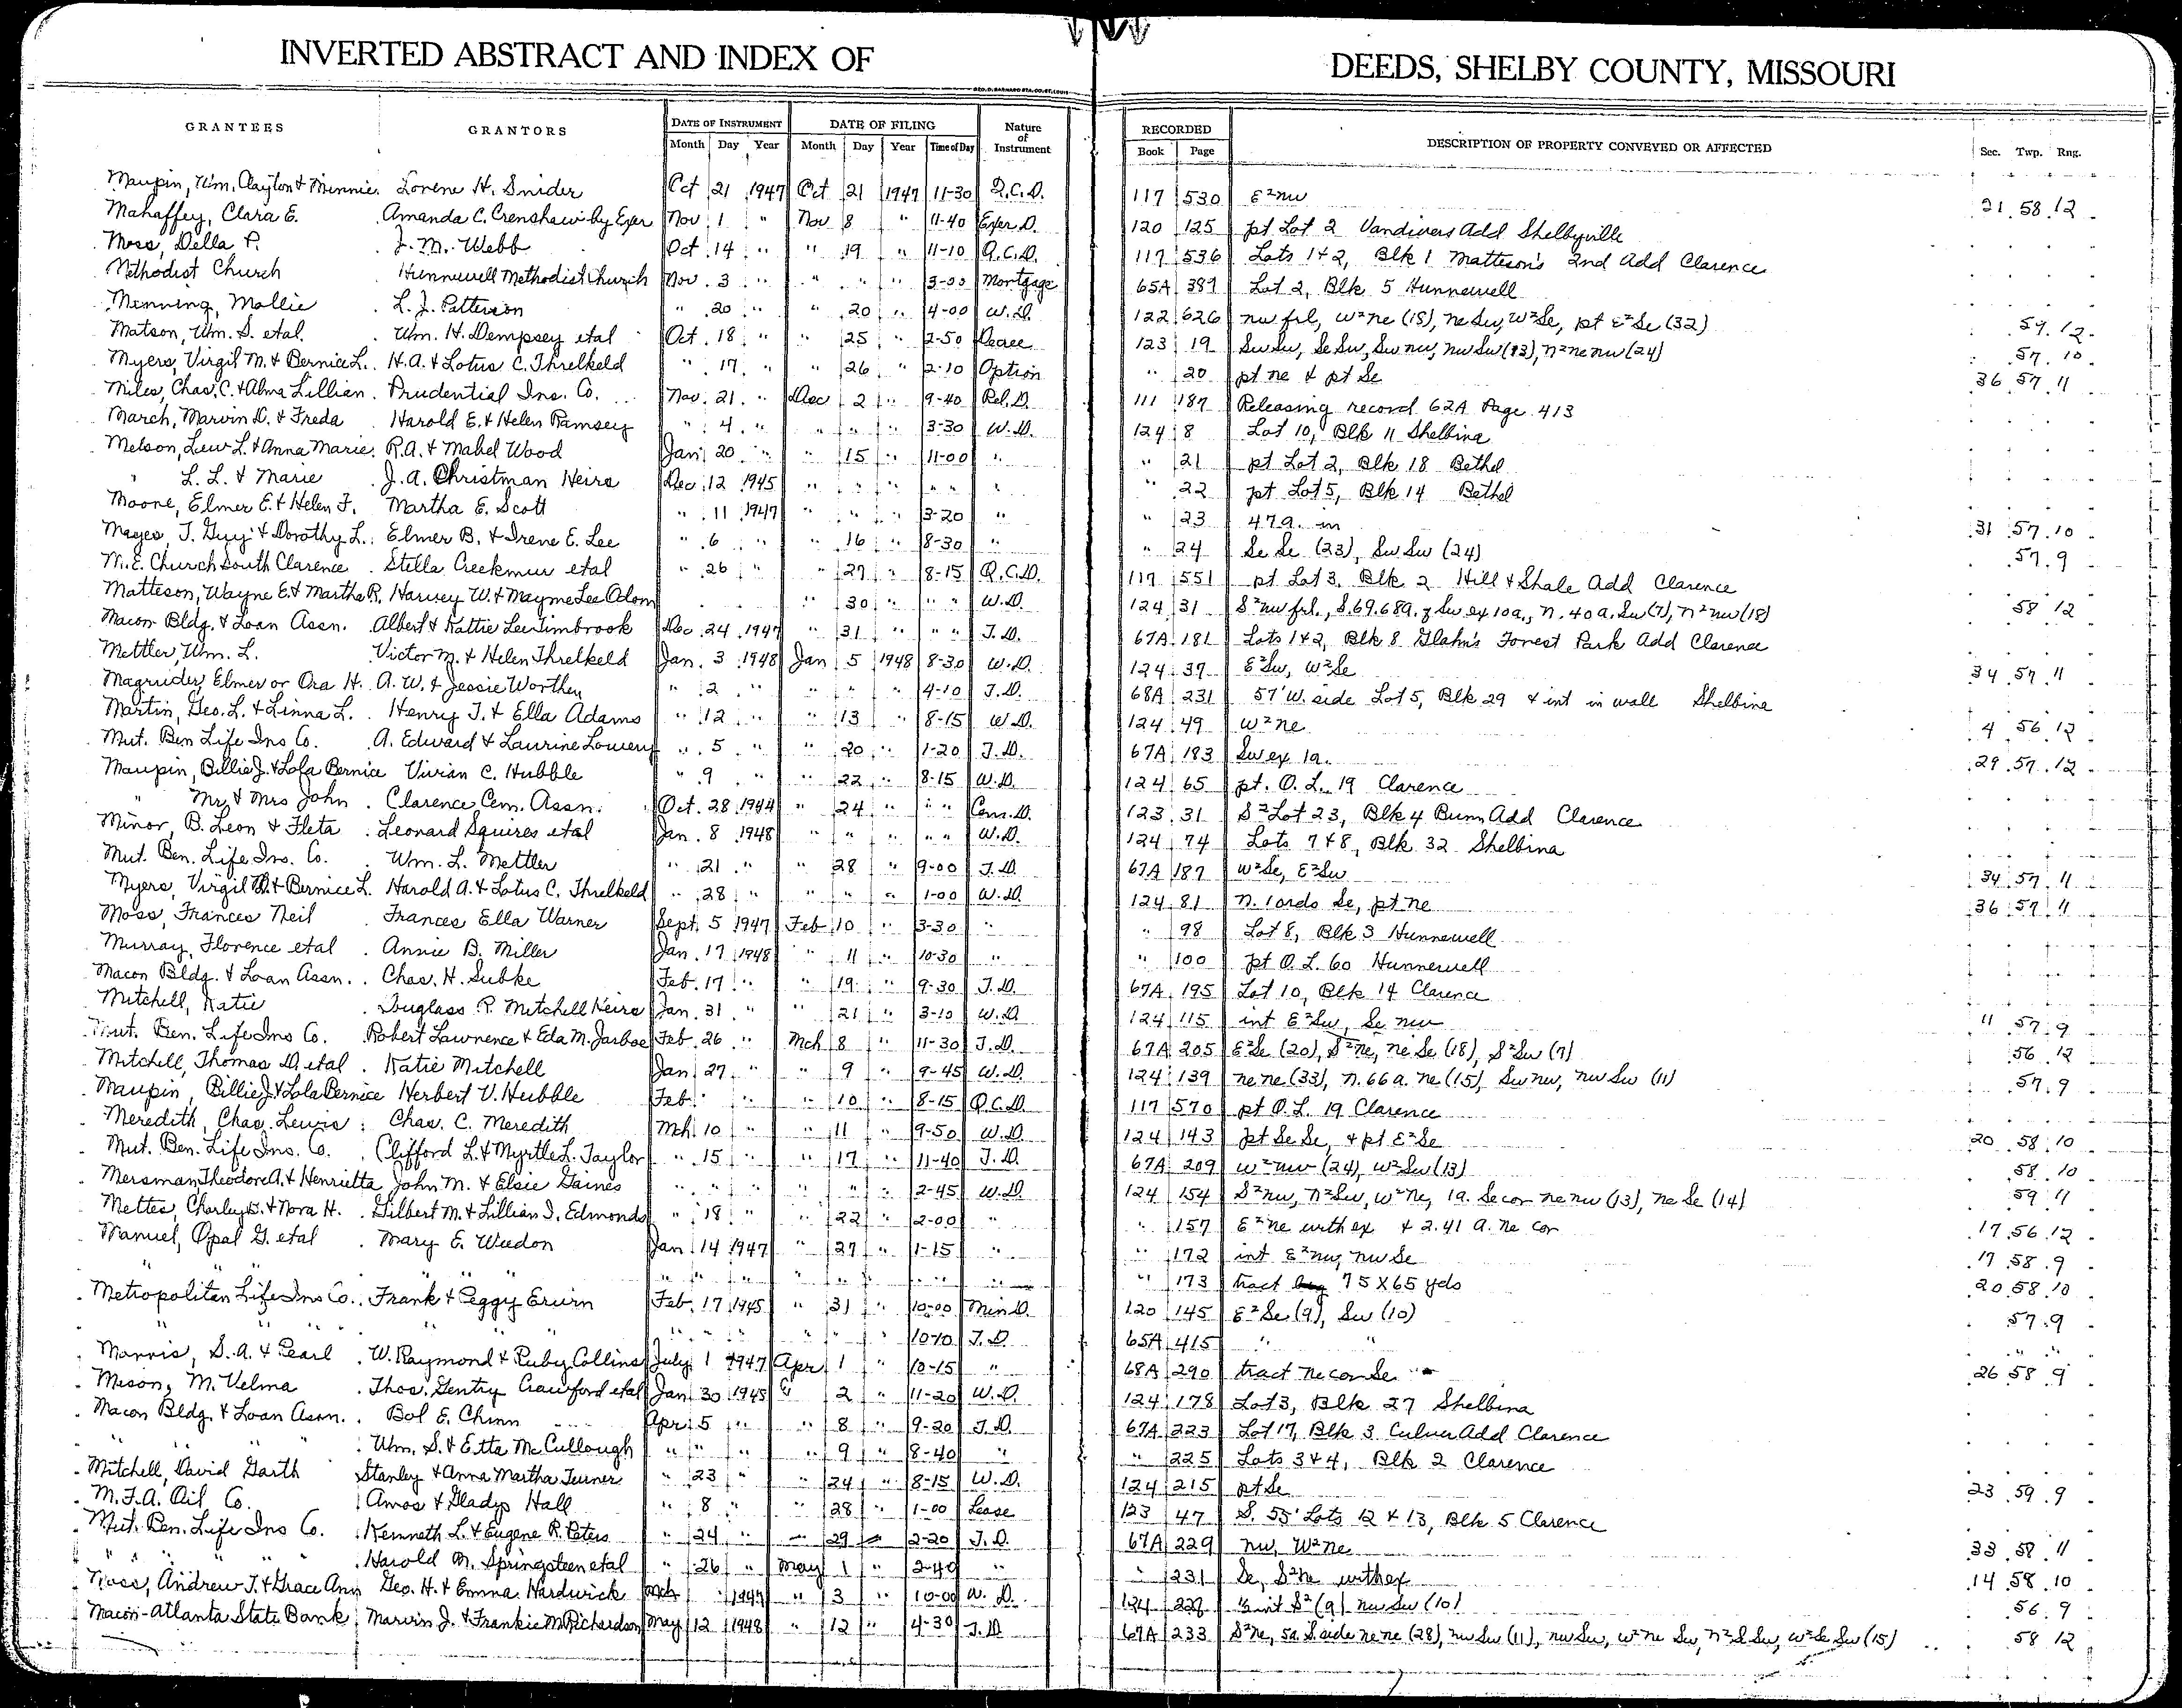 INVERTED ABSTRACT AND INDEX OF DEEDS, SHELBY COUNTY, MISSOURI
GEO. D. BARNARD STA. CO. ST. LOUIS
GRANTEES GRANTORS DATE OF INSTRUMENT DATE OF FILING Nature of Instrument RECORDED DESCRIPTION OF PROPERTY CONVEYED OR AFFECTED Sec. Twp. Rng.
Month Day Year Month Day Year Time of Day Book Page
Maupin, Wm. Clayton & Minnie Lorene H. Snider Oct 21 1947 Oct 21 1947 11-30 Q.C.D. 117 530 E²nw 21 58 12
Mahaffey, Clara E. Amanda C. Crenshaw by Exer Nov 1 " Nov 8 " 11-40 Exer D. 120 125 pt Lot 2 Vandivers Add Shelbyville
Moss, Della P. J. M. Webb Oct 14 " " 19 " 11-10 Q.C.D. 117 536 Lots 1+2, Blk 1 Matteson's 2nd Add Clarence
Methodist Church Hunnewell Methodist Church Nov. 3 " " " " 3-00 Mortgage 65A 389 Lot 2, Blk 5 Hunnewell
Menning, Mollie L. J. Patterson " 20 " " 20 " 4-00 W.D. 122 626 nw frl, W²ne (15), ne Sw, W²Se, pt E²Se (32) 59 12
Matson, Wm. S. etal. Wm. H. Dempsey etal Oct. 18 " " 25 " 2-50 Decree 123 19 Sw Sw, Se Sw, Sw nw, nw Sw (13), n²ne nw (24) 57 10
Myers, Virgil M. & Bernice L. H.A. & Lotus C. Threlkeld " 17 " " 26 " 2-10 Option " 20 pt ne & pt Se 36 57 11
Miles, Chas. C. & Alma Lillian Prudential Ins. Co. Nov. 21 " Dec 2 " 9-40 Rel. D. 111 187 Releasing record 62A Page 413
March, Marvin D. & Freda Harold E. & Helen Ramsey " 4 " " " " 3-30 W.D. 124 8 Lot 10, Blk 11 Shelbina
Melson, Lew L. & Anna Marie R.A. & Mabel Wood Jan 20 " " 15 " 11-00 " " 21 pt Lot 2, Blk 18 Bethel
" L. L. & Marie J. A. Christman Heirs Dec 12 1945 " " " " " " " 22 pt Lot 5, Blk 14 Bethel
Moore, Elmer E. & Helen F. Martha E. Scott " 11 1947 " " " 3-20 " " 23 47a. in 31 57 10
Mayes, T. Guy & Dorothy L. Elmer B. & Irene E. Lee " 6 " " 16 " 8-30 " " 24 Se Se (23), Sw Sw (24) 57 9
M. E. Church South Clarence Stella Creekmur etal " 26 " " 27 " 8-15 Q.C.D. 117 551 pt Lot 3, Blk 2 Hill & Shale Add Clarence
Matteson, Wayne E. & Martha R. Harvey W. & Mayme Lee Odom " 30 " " " W.D. 124 31 S²nw frl., S. 69.68a. of Sw ex 10a., n. 40a. Sw (7), n²nw (18) 58 12
Macon Bldg. & Loan Assn. Albert & Kattie Lee Timbrook Dec 24 1947 " 31 " " " T.D. 67A 181 Lots 1+2, Blk 8 Glahn's Forrest Park Add Clarence
Mettler, Wm. L. Victor M. & Helen Threlkeld Jan. 3 1948 Jan 5 1948 8-30 W.D. 124 37 E²Sw, W²Se 34 57 11
Magruder, Elmer or Ora H. A. W. & Jessie Worthen " 2 " " " " 4-10 T.D. 68A 231 57' W. side Lot 5, Blk 29 & int in wall Shelbina
Martin, Geo. L. & Linna L. Henry T. & Ella Adams " 12 " " 13 " 8-15 W.D. 124 49 W²ne 4 56 12
Mut. Ben Life Ins Co. A. Edward & Laurine Lowery " 5 " " 20 " 1-20 T.D. 67A 183 Sw ex 1a. 29 57 12
Maupin, Billie J. & Lola Bernice Vivian C. Hubble " 9 " " 22 " 8-15 W.D. 124 65 pt. O. L. 19 Clarence
" Mr & Mrs John Clarence Cem. Assn. Oct. 28 1944 " 24 " " " Cem. D. 123 31 S²Lot 23, Blk 4 Bunn Add Clarence
Minor, B. Leon & Fleta Leonard Squires etal Jan. 8 1948 " " " " " W.D. 124 74 Lots 7+8, Blk 32 Shelbina
Mut. Ben. Life Ins. Co. Wm. L. Mettler " 21 " " 28 " 9-00 T.D. 67A 187 W²Se, E²Sw 34 57 11
Myers, Virgil M. & Bernice L. Harold A. & Lotus C. Threlkeld " 28 " " " " 1-00 W.D. 124 81 n. 1 ards Se, pt ne 36 57 11
Moss, Frances Neil Frances Ella Warner Sept. 5 1947 Feb 10 " 3-30 " " 98 Lot 8, Blk 3 Hunnewell
Murray, Florence etal Annie B. Miller Jan. 17 1948 " 11 " 10-30 " " 100 pt O. L. 60 Hunnewell
Macon Bldg. & Loan Assn. Chas. H. Subke Feb. 17 " " 19 " 9-30 T.D. 67A 195 Lot 10, Blk 14 Clarence
Mitchell, Katie Douglass R. Mitchell Heirs Jan. 31 " " 21 " 3-10 W.D. 124 115 int E²Sw, Se nw 11 57 9
Mut. Ben. Life Ins Co. Robert Lawrence & Eda M. Jarboe Feb. 26 " Mch 8 " 11-30 T.D. 67A 205 E²Se (20), S²ne, ne Se (18), S²Sw (7) 56 12
Mitchell, Thomas D. etal Katie Mitchell Jan 27 " " 9 " 9-45 W.D. 124 139 ne ne (33), n. 66a. ne (15), Sw nw, nw Sw (11) 57 9
Maupin, Billie J. & Lola Bernice Herbert V. Hubble Feb " " 10 " 8-15 Q.C.D. 117 570 pt O. L. 19 Clarence
Meredith, Chas. Lewis Chas. C. Meredith Mch. 10 " " 11 " 9-50 W.D. 124 143 pt Se Se, & pt E²Se 20 58 10
Mut. Ben. Life Ins. Co. Clifford L. & Myrtle L. Taylor " 15 " " 17 " 11-40 T.D. 67A 209 W²nw (24), W²Sw (13) 58 10
Mersman, Theodore A. & Henrietta John M. & Elsie Gaines " " " " " " 2-45 W.D. 124 154 S²nw, n²Sw, W²ne, 1a. Se cor ne nw (13), ne Se (14) 59 11
Mettes, Charley D. & Nora H. Gilbert M. & Lillian I. Edmonds " 18 " " 22 " 2-00 " " 157 E²ne with ex & 2.41 a. ne cor 17 56 12
Manuel, Opal G. etal Mary E. Weedon Jan 14 1947 " 27 " 1-15 " " 172 int E²nw, nw Se 17 58 9
" " " " " " " " " " " " " 173 tract 75 X 65 yds 20 58 10
Metropolitan Life Ins Co. Frank & Peggy Erwin Feb. 17 1945 " 31 " 10-00 Min D. 120 145 E²Se (9), Sw (10) 57 9
" " " " " " " " " " 10-10 T.D. 65A 415 " " " "
Morris, S. A. & Pearl W. Raymond & Ruby Collins July 1 1947 Apr 1 " 10-15 " 68A 290 tract ne cor Se 26 58 9
Meson, M. Velma Thos. Gentry Crawford etal Jan 30 1945 " 2 " 11-20 W.D. 124 178 Lot 3, Blk 27 Shelbina
Macon Bldg. & Loan Assn. Bob E. Chinn Apr 5 " " 8 " 9-20 T.D. 67A 223 Lot 17, Blk 3 Culver Add Clarence
" " " Wm. S. & Etta McCullough " " " " 9 " 8-40 " " 225 Lots 3+4, Blk 2 Clarence
Mitchell, David Garth Stanley & Anna Martha Turner " 23 " " 24 " 8-15 W.D. 124 215 pt Se 23 59 9
M.F.A. Oil Co. Amos & Gladys Hall " 8 " " 28 " 1-00 Lease 123 47 S. 55' Lots 12 & 13, Blk 5 Clarence
Mut. Ben. Life Ins Co. Kenneth L. & Eugene R. Peters " 24 " " 29 " 2-20 T.D. 67A 229 nw, W²ne 33 58 11
" " " " Harold M. Springsteen etal " 26 " May 1 " 2-40 " " 231 Se, S²ne with ex 14 58 10
Moss, Andrew J. & Grace Ann Geo. H. & Emma Hardwick Mch " 1947 " 3 " 10-00 W.D. 124 227 ½ int S² (9) nw Sw (10) 56 9
Macon-Atlanta State Bank Marvin J. & Frankie M. Richardson May 12 1948 " 12 " 4-30 T.D. 67A 233 S²ne, 5a S side ne ne (28), nw Sw (11), nw Sw, W²ne Sw, n²S Sw, W²Se Sw (15) 58 12